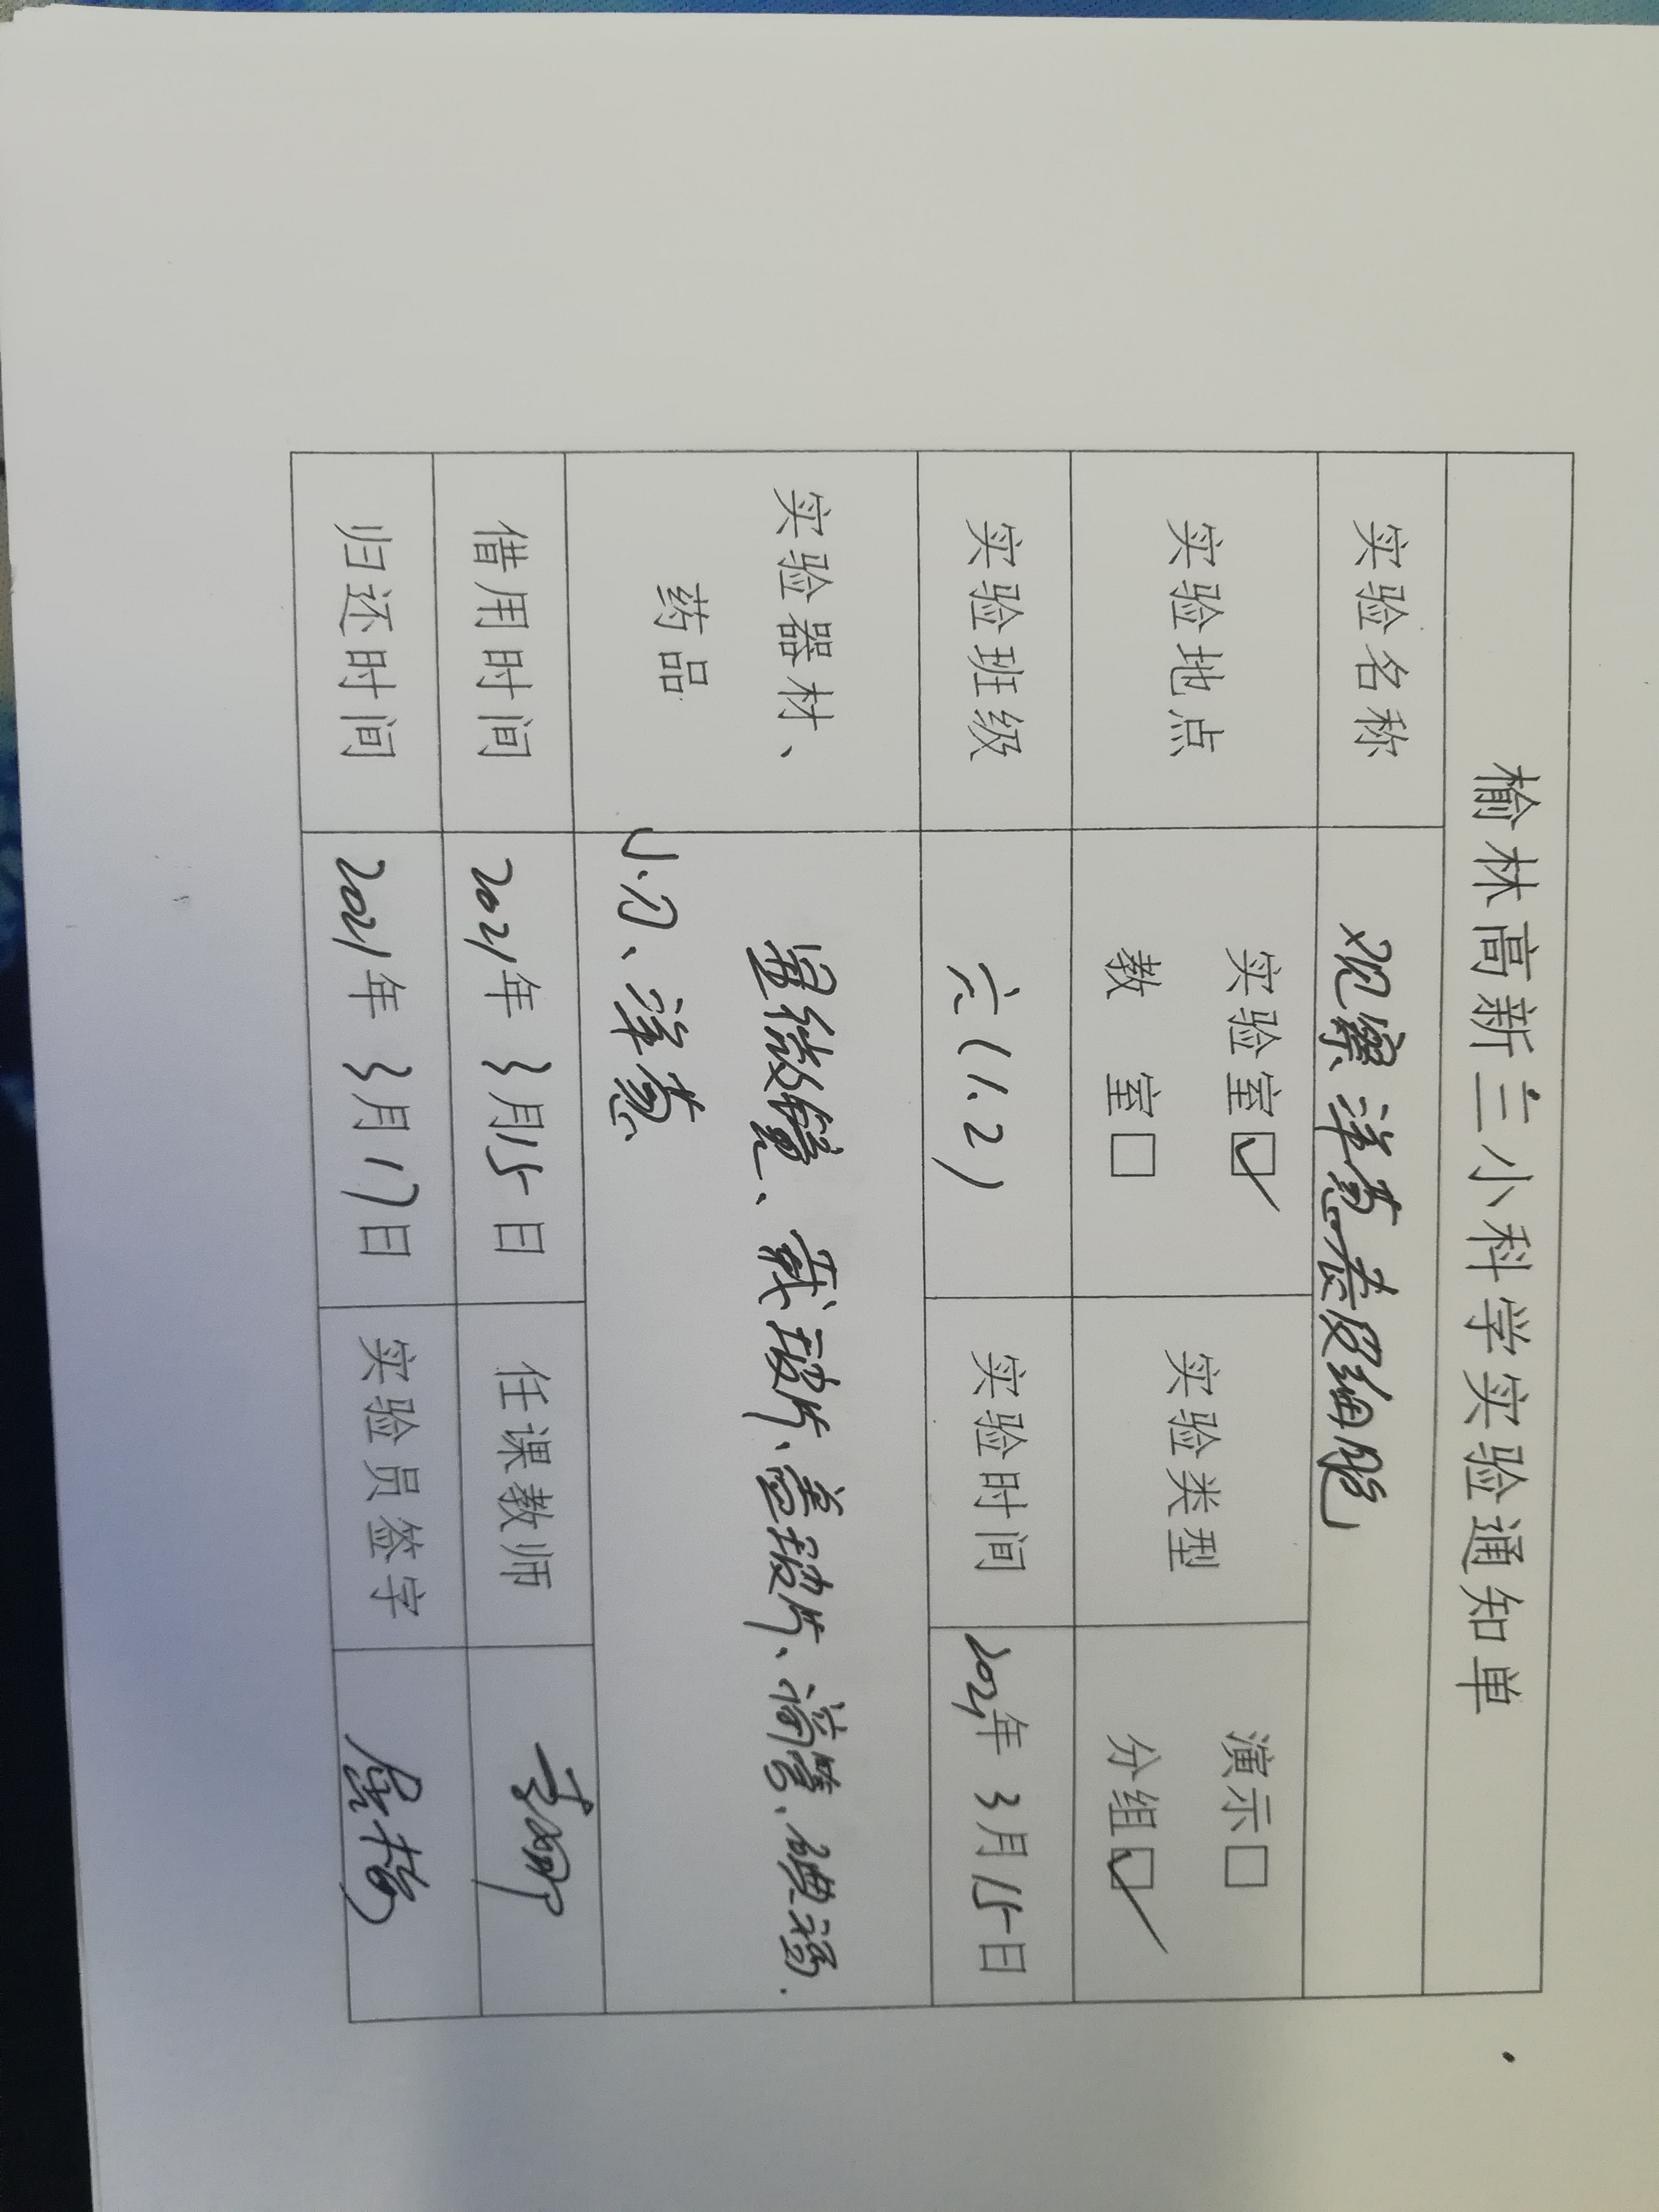 榆林高新三小科学实验通知单
实验名称 观察洋葱表皮细胞
实验地点 实验室☑ 实验类型 演示□
教 室□ 分组☑
实验班级 六(1.2) 实验时间 2021年3月15日
实验器材、 显微镜、载玻片、盖玻片、滴管、碘酒.
药品 小刀、洋葱
借用时间 2021年3月15日 任课教师
归还时间 2021年3月17日 实验员签字